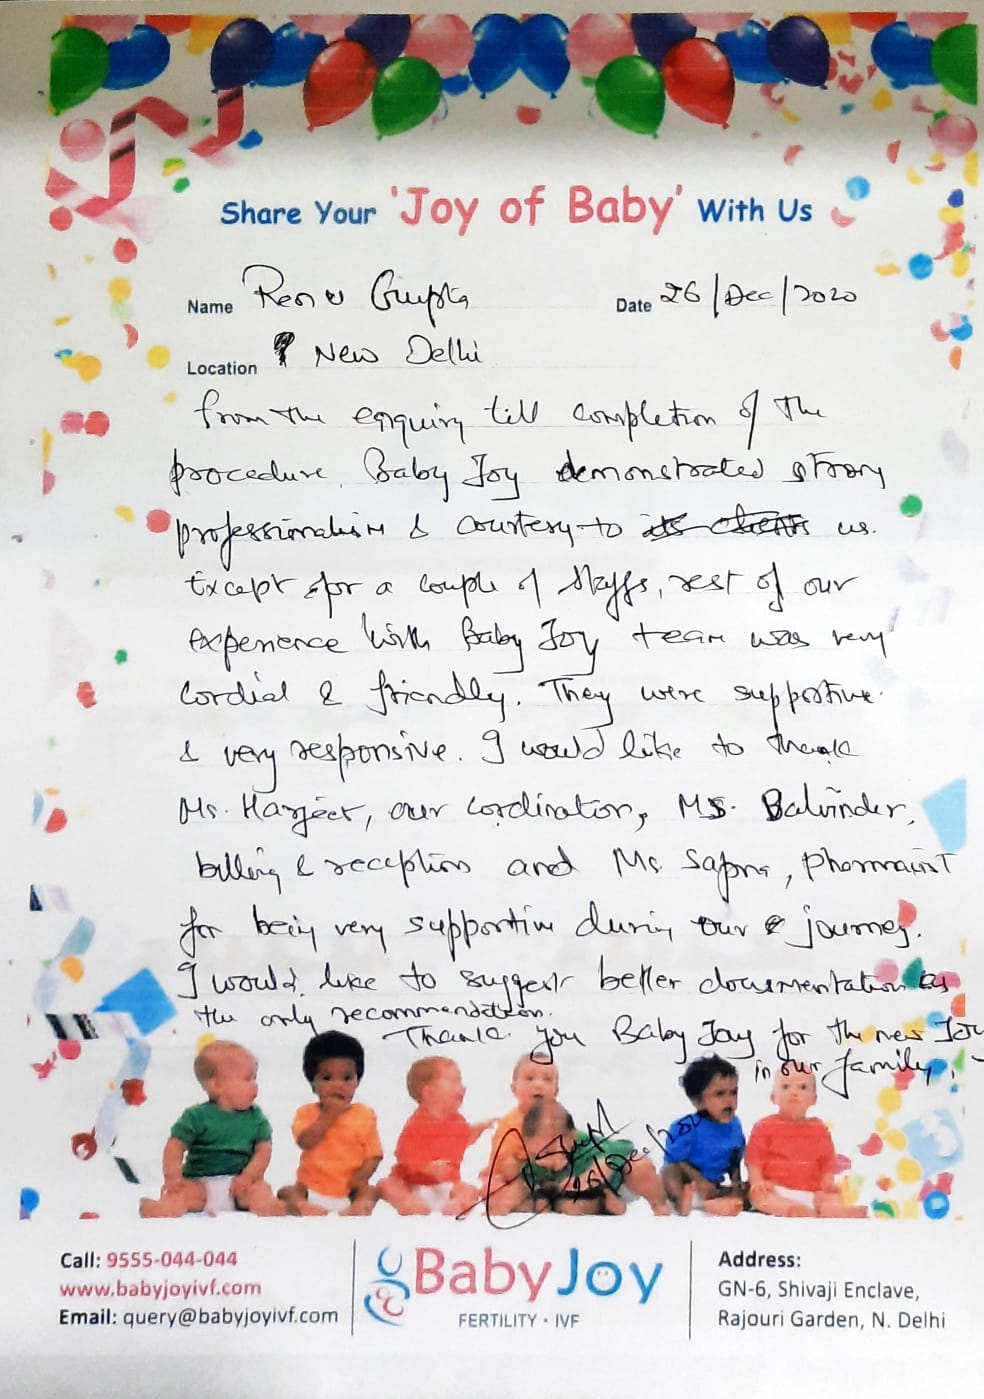 Share Your 'Joy of Baby' With Us
Name Renu Gupta Date 26/Dec/2020
Location New Delhi
from the enquiry till completion of the
procedure, Baby Joy demonstrated strong
professionalism & courtesy to its clients us.
Except for a couple of staffs, rest of our
experience with Baby Joy team was very
cordial & friendly. They were supportive
& very responsive. I would like to thank
Ms. Harjeet, our cordinator, Ms. Balvinder,
billing & reception and Ms. Sapna, pharmacist
for being very supportive during our journey.
I would like to suggest better documentation as
the only recommendation.
Thank you Baby Joy for the new Joy
in our family!
Gupta
26/Dec/2020
Call: 9555-044-044
www.babyjoyivf.com
Email: query@babyjoyivf.com
BabyJoy
FERTILITY · IVF
Address:
GN-6, Shivaji Enclave,
Rajouri Garden, N. Delhi